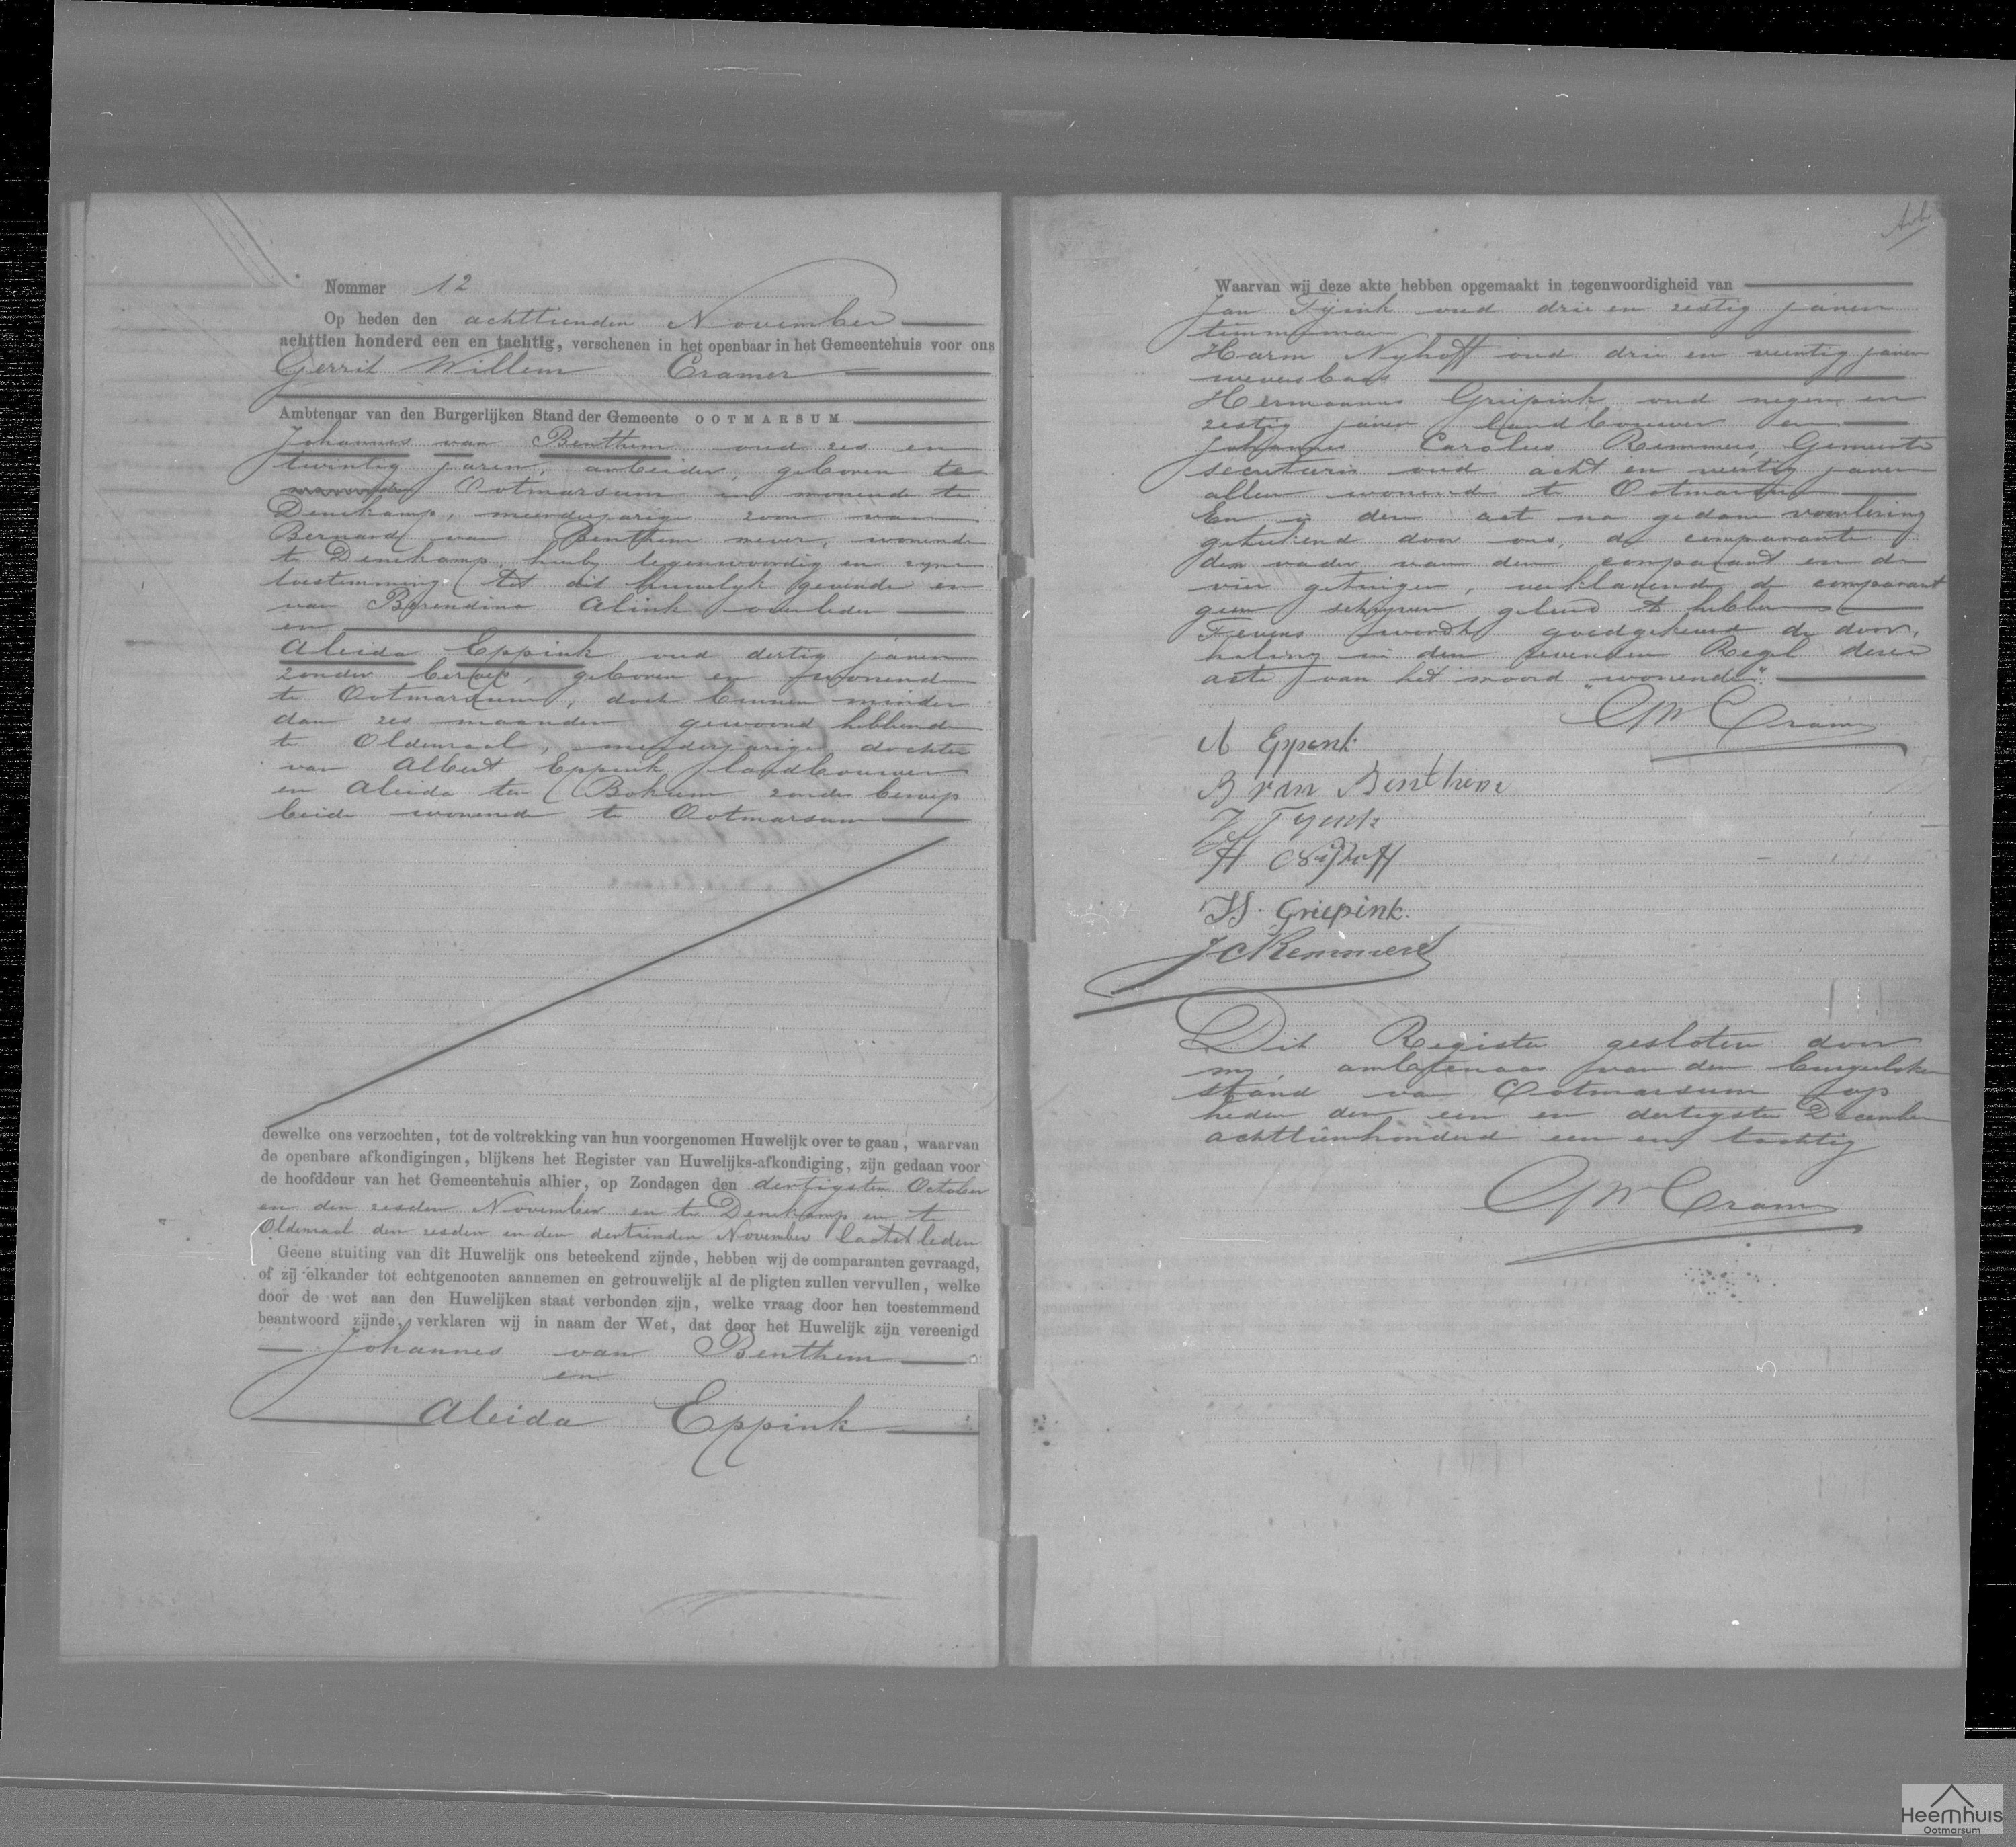 Nommer 12
Op heden den achttienden November
achttien honderd een en tachtig, verschenen in het openbaar in het Gemeentehuis voor ons
Gerrit Willem Cramer
Ambtenaar van den Burgerlijken Stand der Gemeente OOTMARSUM
Johannes van Benthem oud zes en
twintig jaren, arbeider, geboren te
Ootmarsum en wonende te
Denekamp, meerderjarige zoon van
Bernard van Benthem wever, wonende
te Denekamp, hierby tegenwoordig en zyne
toestemming tot dit huwelyk gevende en
van Berendina Alink overleden
en
Aleida Eppink oud dertig jaren
zonder beroep, geboren en wonende
te Ootmarsum, doch binnen minder
dan zes maanden gewoond hebbende
te Oldenzaal, meerderjarige dochter
van Albert Eppink landbouwer
en Aleida ten Bokum zonder beroep
beide wonende te Ootmarsum
dewelke ons verzochten, tot de voltrekking van hun voorgenomen Huwelijk over te gaan, waarvan
de openbare afkondigingen, blijkens het Register van Huwelijks-afkondiging, zijn gedaan voor
de hoofddeur van het Gemeentehuis alhier, op Zondagen den dertigsten October
en den zesden November en te Denekamp en te
Oldenzaal den zesden en den dertienden November laatstleden
Geene stuiting van dit Huwelijk ons beteekend zijnde, hebben wij de comparanten gevraagd,
of zij elkander tot echtgenooten aannemen en getrouwelijk al de pligten zullen vervullen, welke
door de wet aan den Huwelijken staat verbonden zijn, welke vraag door hen toestemmend
beantwoord zijnde, verklaren wij in naam der Wet, dat door het Huwelijk zijn vereenigd
Johannes van Benthem
en
Aleida Eppink
Waarvan wij deze akte hebben opgemaakt in tegenwoordigheid van
Jan Tijink oud drie en zestig jaren
timmerman
Harm Nyhoff oud drie en veertig jaren
weversbaas
Hermannus Griepink oud negen en
zestig jaren landbouwer en
Johannes Carolus Remmers, Gemeente
secretaris oud acht en veertig jaren
allen wonende te Ootmarsum
En is deze acte na gedane voorlezing
geteekend door ons, de comparante
den vader van den comparant en de
vier getuigen, verklarende de comparant
geen schryven geleerd te hebben
Tevens wordt goedgekeurd de door,
haling in den zevenden Regel dezer
acte van het woord "wonende".
GW Cramer
A Eppink
B van Benthem
J Tyink
H Nijhoff
H. Griepink.
JC Remmers
Dit Register gesloten door
my, ambtenaar van den burgerlyken
stand van Ootmarsum op
heden den een en dertigsten December
achttienhonderd een en tachtig
GW Cramer
Heemhuis
Ootmarsum